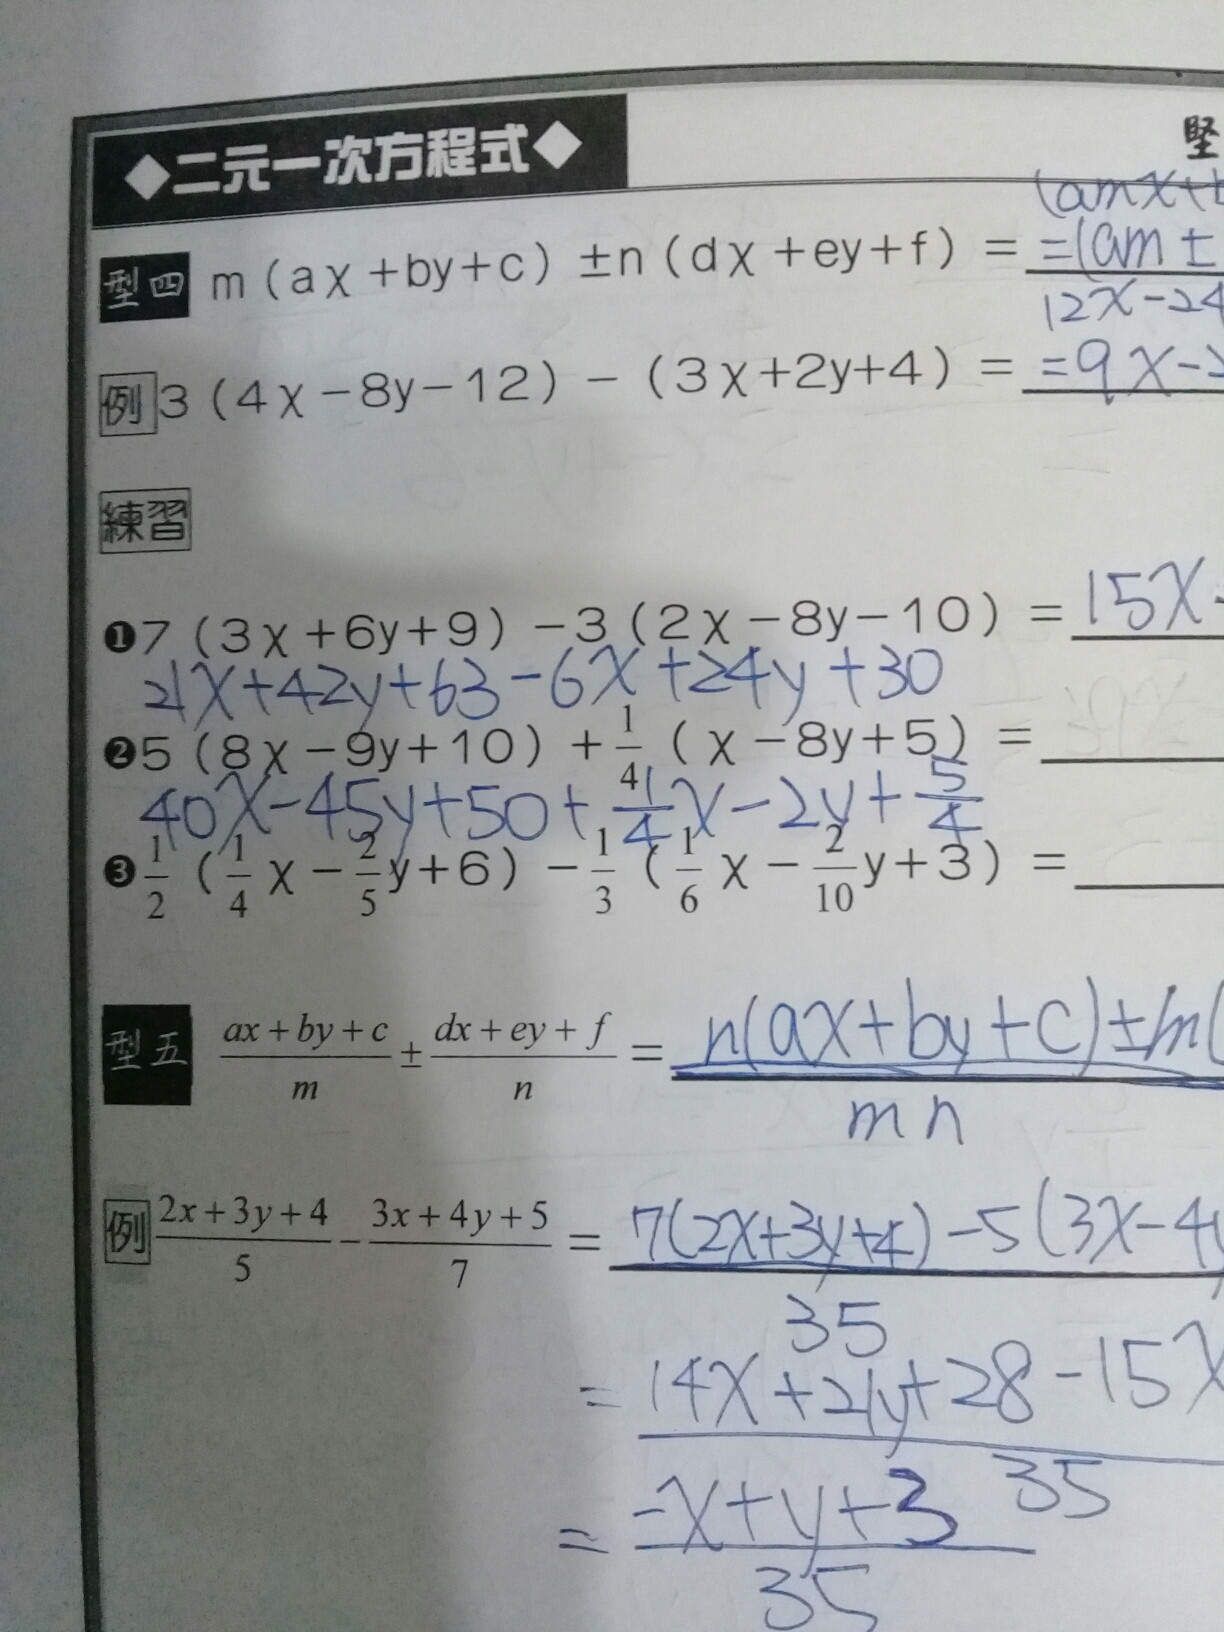 ◆二元一次方程式◆
堅
(amx+b
型四 m(ax+by+c)±n(dx+ey+f)= =(am±
12x-24
例 3(4x-8y-12)-(3x+2y+4)= =9x-2
練習
❶7(3x+6y+9)-3(2x-8y-10)= 15x-
21x+42y+63-6x+24y+30
❷5(8x-9y+10)+1/4(x-8y+5)=
40x-45y+50+1/4x-2y+5/4
❸1/2(1/4x-2/5y+6)-1/3(1/6x-2/10y+3)=
型五 (ax+by+c)/m ± (dx+ey+f)/n = n(ax+by+c)±m(
mn
例 (2x+3y+4)/5 - (3x+4y+5)/7 = 7(2x+3y+4)-5(3x-4y
35
= 14x+21y+28-15x
35
= -x+y+3
35